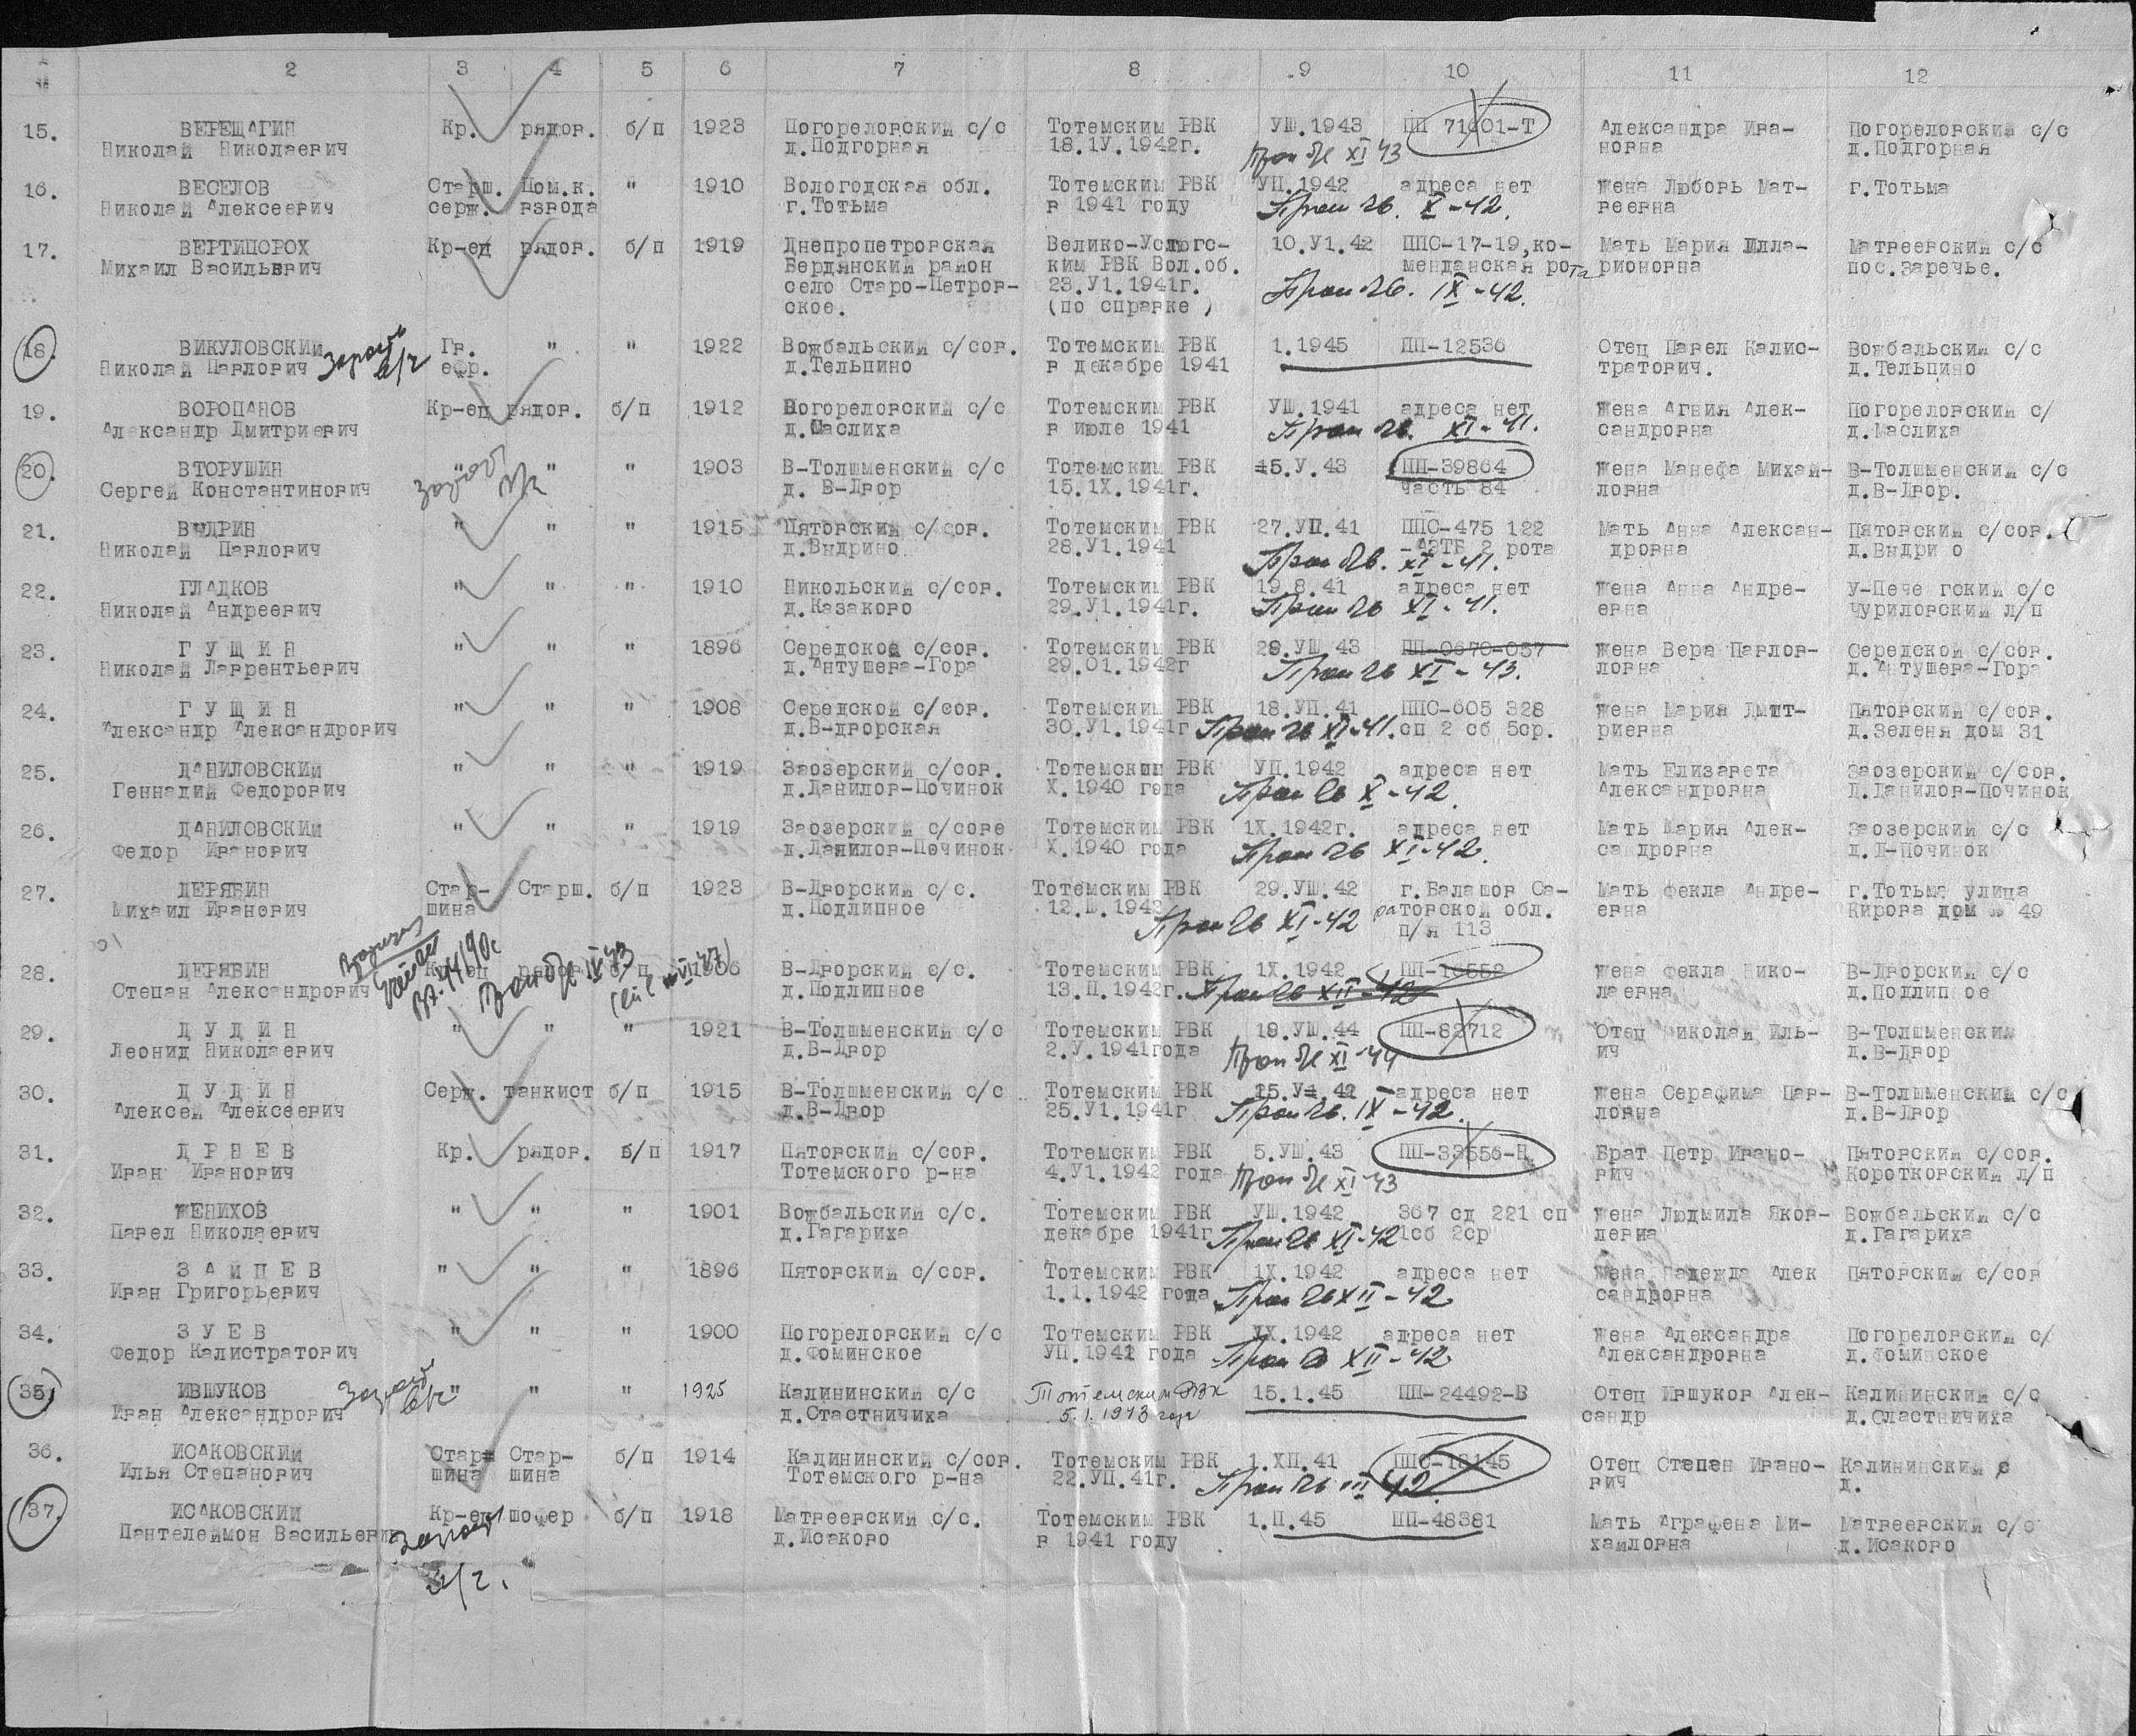 2 3 4 5 6 7 8 9 10 11 12
15. ВЕРЕЩАГИН Кр. рядов. б/п 1923 Погореловский с/с Тотемским РВК УШ.1943 ПП 71601-Т Александра Ива- Погореловский с/с
Николай Николаевич д.Подгорная 18.1У.1942г. XI 43 новна д.Подгорная
16. ВЕСЕЛОВ Старш. Пом.к. " 1910 Вологодская обл. Тотемским РВК УП.1942 адреса нет Жена Любовь Мат- г.Тотьма
Николай Алексеевич серж. взвода г.Тотьма в 1941 году X-42. веевна
17. ВЕРТИПОРОХ Кр-ец рядов. б/п 1919 Днепропетровская Велико-Устюгс- 10.У1.42 ППС-17-19,ко- Мать Мария Илла- Матвеевский с/с
Михаил Васильевич Бердянский район ким РВК Вол.об. менданская рота рионовна пос.Заречье.
село Старо-Петров- 23.У1.1941г. IX-42.
ское. (по справке )
18. ВИКУЛОВСКИЙ Гв. " " 1922 Вожбальский с/сов. Тотемским РВК 1.1945 ПП-12536 Отец Павел Калис- Вожбальский с/с
Николай Павлович ефр. д.Тельпино в декабре 1941 тратович. д.Тельпино
19. ВОРОПАНОВ Кр-ец рядов. б/п 1912 Погореловский с/с Тотемским РВК УШ.1941 адреса нет Жена Агния Алек- Погореловский с/
Александр Дмитриевич д.Маслиха в июле 1941 XI-41. сандровна д.Маслиха
20. ВТОРУШИН " " " 1903 В-Толшменский с/с Тотемским РВК 15.У.43 ПП-39864 Жена Манефа Михай- В-Толшменский с/с
Сергей Константинович д. В-Двор 15.1Х.1941г. часть 84 ловна д.В-Двор.
21. ВЫДРИН " " " 1915 Пятовский с/сов. Тотемским РВК 27.УП.41 ППС-475 122 Мать Анна Алексан- Пятовский с/сов.
Николай Павлович д.Выдрино 28.У1.1941 XI-41. 2 рота дровна д.Выдри о
22. ГЛАДКОВ " " " 1910 Никольский с/сов. Тотемским РВК 19.8.41 адреса нет Жена Анна Андре- У-Пече гский с/с
Николай Андреевич д.Казаково 29.У1.1941г. XI-41. евна Чуриловский л/п
23. Г У Щ И Н " " " 1896 Середской с/сов. Тотемским РВК 29.УШ.43 ПП-0670-057 Жена Вера Павлов- Середской с/сов.
Николай Лаврентьевич д.Антушева-Гора 29.01.1942г XI-43. ловна д.Антушева-Гора
24. Г У Щ И Н " " " 1908 Середской с/сов. Тотемским РВК 18.УП.41 ППС-605 328 Жена Мария Дмит- Пятовский с/сов.
Александр Александрович д.В-дворская 30.У1.1941г XI-41. сп 2 сб 5ср. риевна д.Зеленя дом 31
25. ДАНИЛОВСКИЙ " " " 1919 Заозерский с/сов. Тотемским РВК УП.1942 адреса нет Мать Елизавета Заозерский с/сов.
Геннадий Федорович д.Данилов-Починок Х.1940 года X-42. Александровна Д.Данилов-Починок
26. ДАНИЛОВСКИЙ " " " 1919 Заозерский с/сове Тотемским РВК 1Х.1942г. адреса нет Мать Мария Алек- Заозерский с/с
Федор Иванович д.Данилов-Починок Х.1940 года XI-42. сандровна д.Д-Починок
27. ДЕРЯБИН Стар- Старш. б/п 1923 В-Дворский с/с. Тотемским РВК 29.УШ.42 г.Балашов Са- Мать Фекла Андре- г.Тотьма улица
Михаил Иванович шина д.Подлипное 12.Ш.1942 XI-42 ратовской обл. евна Кирова дом № 49
п/я 113
28. ДЕРЯБИН Кр-ец рядов. б/п 1906 В-Дворский с/с. Тотемским РВК 1Х.1942 ПП-16552 Жена Фекла Нико- В-Дворский с/с
Степан Александрович д.Подлипное 13.П.1942г. XII-42 лаевна д.Подлипное
29. Д У Д И Н " " " 1921 В-Толшменский с/с Тотемским РВК 19.УШ.44 ПП-82712 Отец Николай Иль- В-Толшменский
Леонид Николаевич д.В-Двор 2.У.1941года XI-44 ич д.В-Двор
30. Д У Д И Н Серж. танкист б/п 1915 В-Толшменский с/с Тотемским РВК адреса нет Жена Серафима Пав- В-Толшменский с/с
Алексей Алексеевич д.В-Двор 25.У1.1941г IX-42. ловна д.В-Двор
31. Д Р Н Е В Кр. рядов. б/п 1917 Пятовский с/сов. Тотемским РВК 5.УШ.43 ПП-33556-Н Брат Петр Ивано- Пятовский с/сов.
Иван Иванович Тотемского р-на 4.У1.1942 года XI-43 вич Коротковский л/п
32. ЖЕНИХОВ " " " 1901 Вожбальский с/с. Тотемским РВК УШ.1942 367 сд 221 сп Жена Людмила Яков- Вожбальский с/с
Павел Николаевич д.Гагариха декабре 1941г XI-42 1сб 2ср левна д.Гагариха
33. З А Й Ц Е В " " " 1896 Пятовский с/сов. Тотемским РВК 1Х.1942 адреса нет Жена Надежда Алек Пятовский с/сов
Иван Григорьевич 1.1.1942 года XII-42 сандровна
34. З У Е В " " " 1900 Погореловский с/с Тотемским РВК 1Х.1942 адреса нет Жена Александра Погореловский с/
Федор Калистратович д.Фоминское УП.1941 года XII-42 Александровна д.Фоминское
35. ИВШУКОВ " " " 1925 Калининский с/с Тотемским РВК 15.1.45 ПП-24492-В Отец Ившуков Алек- Калининский с/с
Иван Александрович д.Стастничиха 5.1.1943 года сандр д.Сластничиха
36. ИСАКОВСКИЙ Стар- Стар- б/п 1914 Калининский с/сов. Тотемским РВК 1.ХП.41 ППС-18145 Отец Степан Ивано- Калининский с
Илья Степанович шина шина Тотемского р-на 22.УП.41г. III 42. вич д.
37. ИСАКОВСКИЙ Кр-ец шофер б/п 1918 Матвеевский с/с. Тотемским РВК 1.П.45 ПП-48381 Мать Аграфена Ми- Матвеевский с/с
Пантелеймон Васильевич д.Исаково в 1941 году хайловна д.Исаково